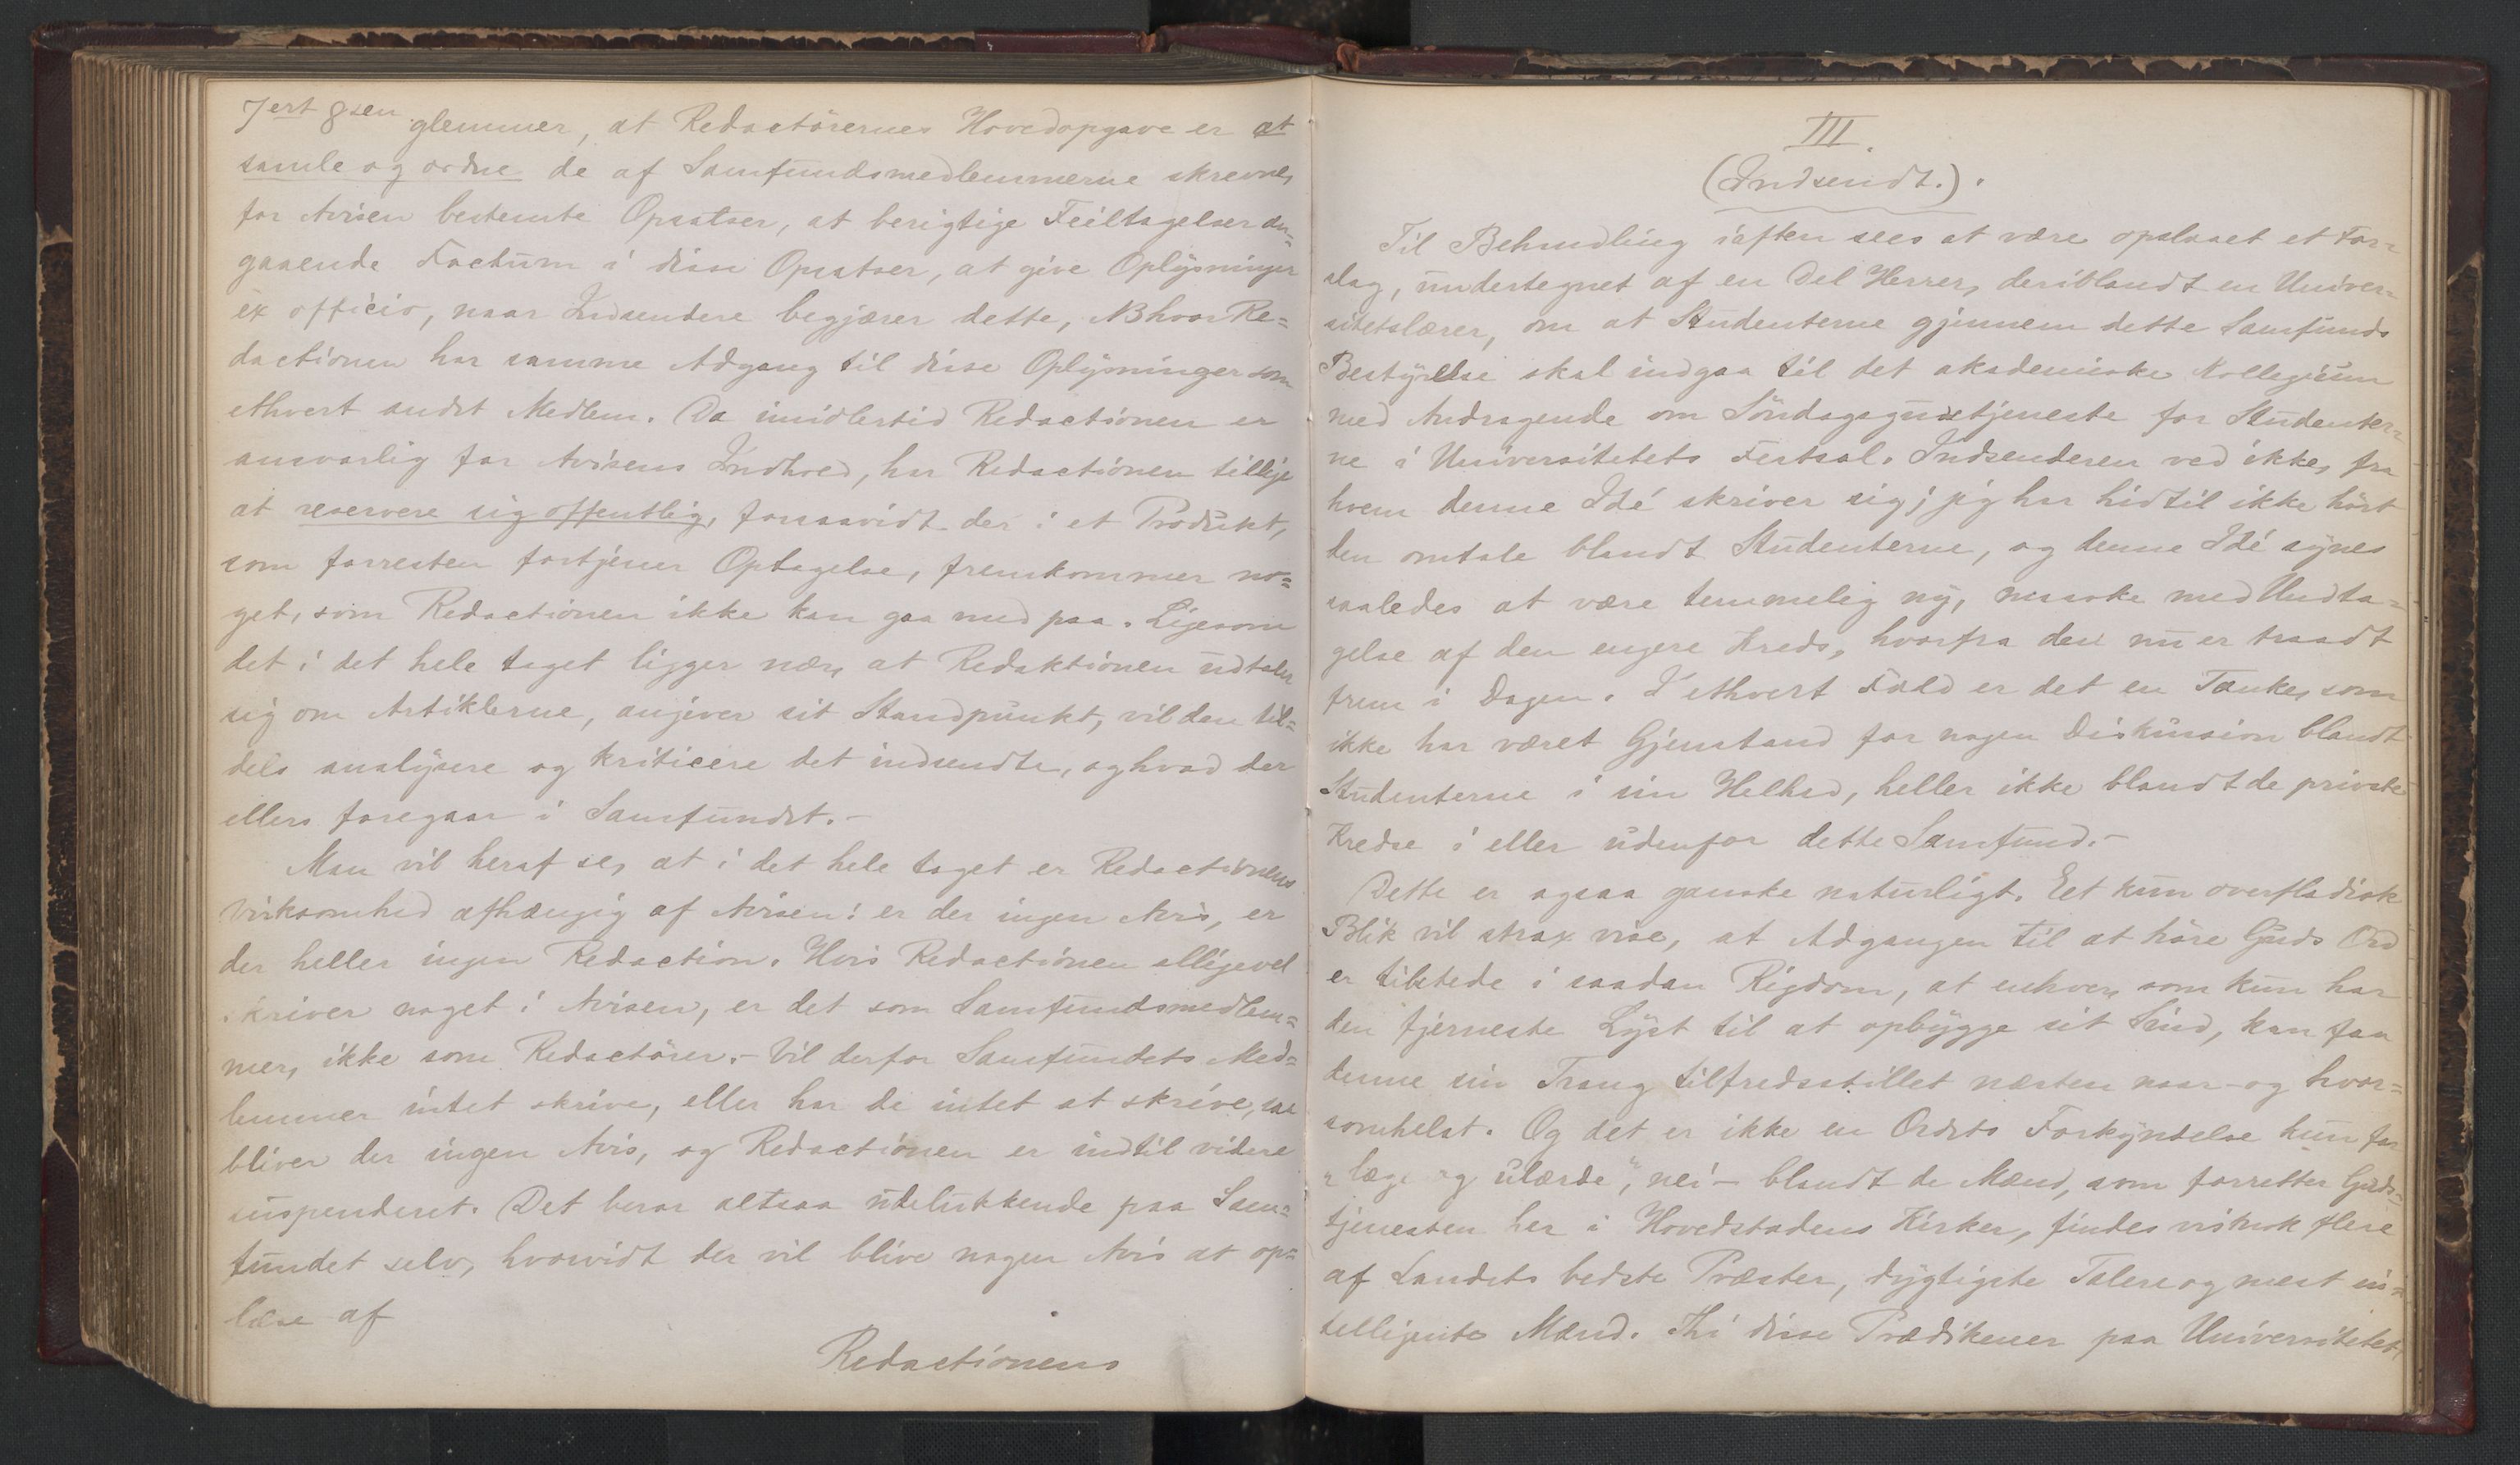 7ert 8sen glemmer, at Redactörernes Hovedopgave er at
samle og ordne de af Samfundsmedlemmerne skrevne,
for Avisen bestemte Opsatser, at berigtige Feiltagelser an-
gaaende Factum i disse Opsatser, at give Oplysninger
ex officio, naar Indsendere begjærer dette, NB hvor Re-
dactionen har samme Adgang til disse Oplysninger som
ethvert andet Medlem. Da imidlertid Redactionen er
ansvarlig for Avisens Indhold, har Redactionen tillige
at reservere sig offentlig, forsaavidt der i et Produkt,
som forresten fortjener Optagelse, fremkommer no-
get, som Redactionen ikke kan gaa med paa. Ligesom
det i det hele taget ligger nær, at Redaktionen udtaler
sig om Artiklerne, angiver sit Standpunkt, vil den til-
dels analysere og kriticere det indsendte, og hvad der
ellers foregaar i Samfundet.-
Man vil heraf se, at i det hele taget er Redactionens
Virksomhed afhængig af Avisen: er der ingen Avis, er
der heller ingen Redaction. Hvis Redactionen alligevel
skriver noget i Avisen, er det som Samfundsmedlem-
mer, ikke som Redactörer.- Vil derfor Samfundets Med-
lemmer intet skrive, eller har de intet at skrive, saa
bliver der ingen Avis, og Redactionen er indtil videre
suspenderet. Det beror altsaa udelukkende paa Sam-
fundet selv, hvorvidt der vil blive nogen Avis at op-
læse af
Redactionens
III.
(Indsendt.).
Til Behandling iaften sees at være opslaaet et For-
slag, undertegnet af en Del Herrer, deriblandt en Univer-
sitetslærer, om at Studenterne gjennem dette Samfunds
Bestyrelse skal indgaa til det akademiske Kollegium
med Andragende om Söndagsgudstjeneste for Studenter-
ne i Universitetets Festsal. Indsenderen ved ikke, fra
hvem denne Idé skriver sig; jeg har hidtil ikke hört
den omtale blandt Studenterne, og denne Idé synes
saaledes at være temmelig ny, maaske med Undta-
gelse af den engere Kreds, hvorfra den nu er traadt
frem i Dagen. I ethvert Fald er det en Tanke, som
ikke har været Gjenstand for nogen Diskussion blandt
Studenterne i sin Helhed, heller ikke blandt de private
Kredse i eller udenfor dette Samfund.-
Dette er ogsaa ganske naturligt. Eet kun overfladisk
Blik vil strax vise, at Adgangen til at höre Guds Ord
er tilstede i saadan Rigdom, at enhver, som kun har
den fjerneste Lyst til at opbygge sit Sind, kan faa
denne sin Trang tilfredsstillet næsten naar- og hvor-
somhelst. Og det er ikke en Ordets Forkyndelse kun for
"læge og ulærde", nei - blandt de Mænd, som forretter Guds-
tjenesten her i Hovedstadens Kirker, findes vistnok flere
af Landets bedste Præster, dygtigste Talere og mest in-
telligente Mænd. Thi disse Prædikener paa Universitetet,